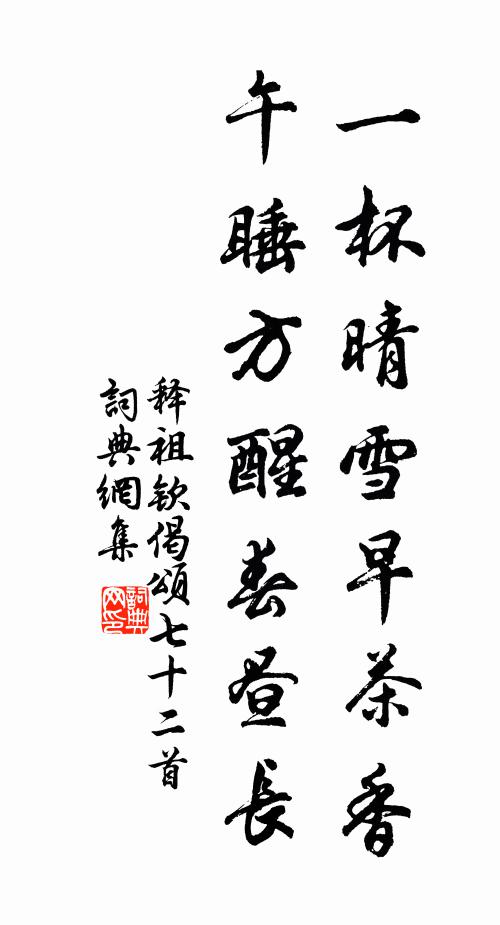 一杯晴雪早茶香
午睡方醒春昼長
释祖钦偈頌七十二首
詞典網集
詞典网印